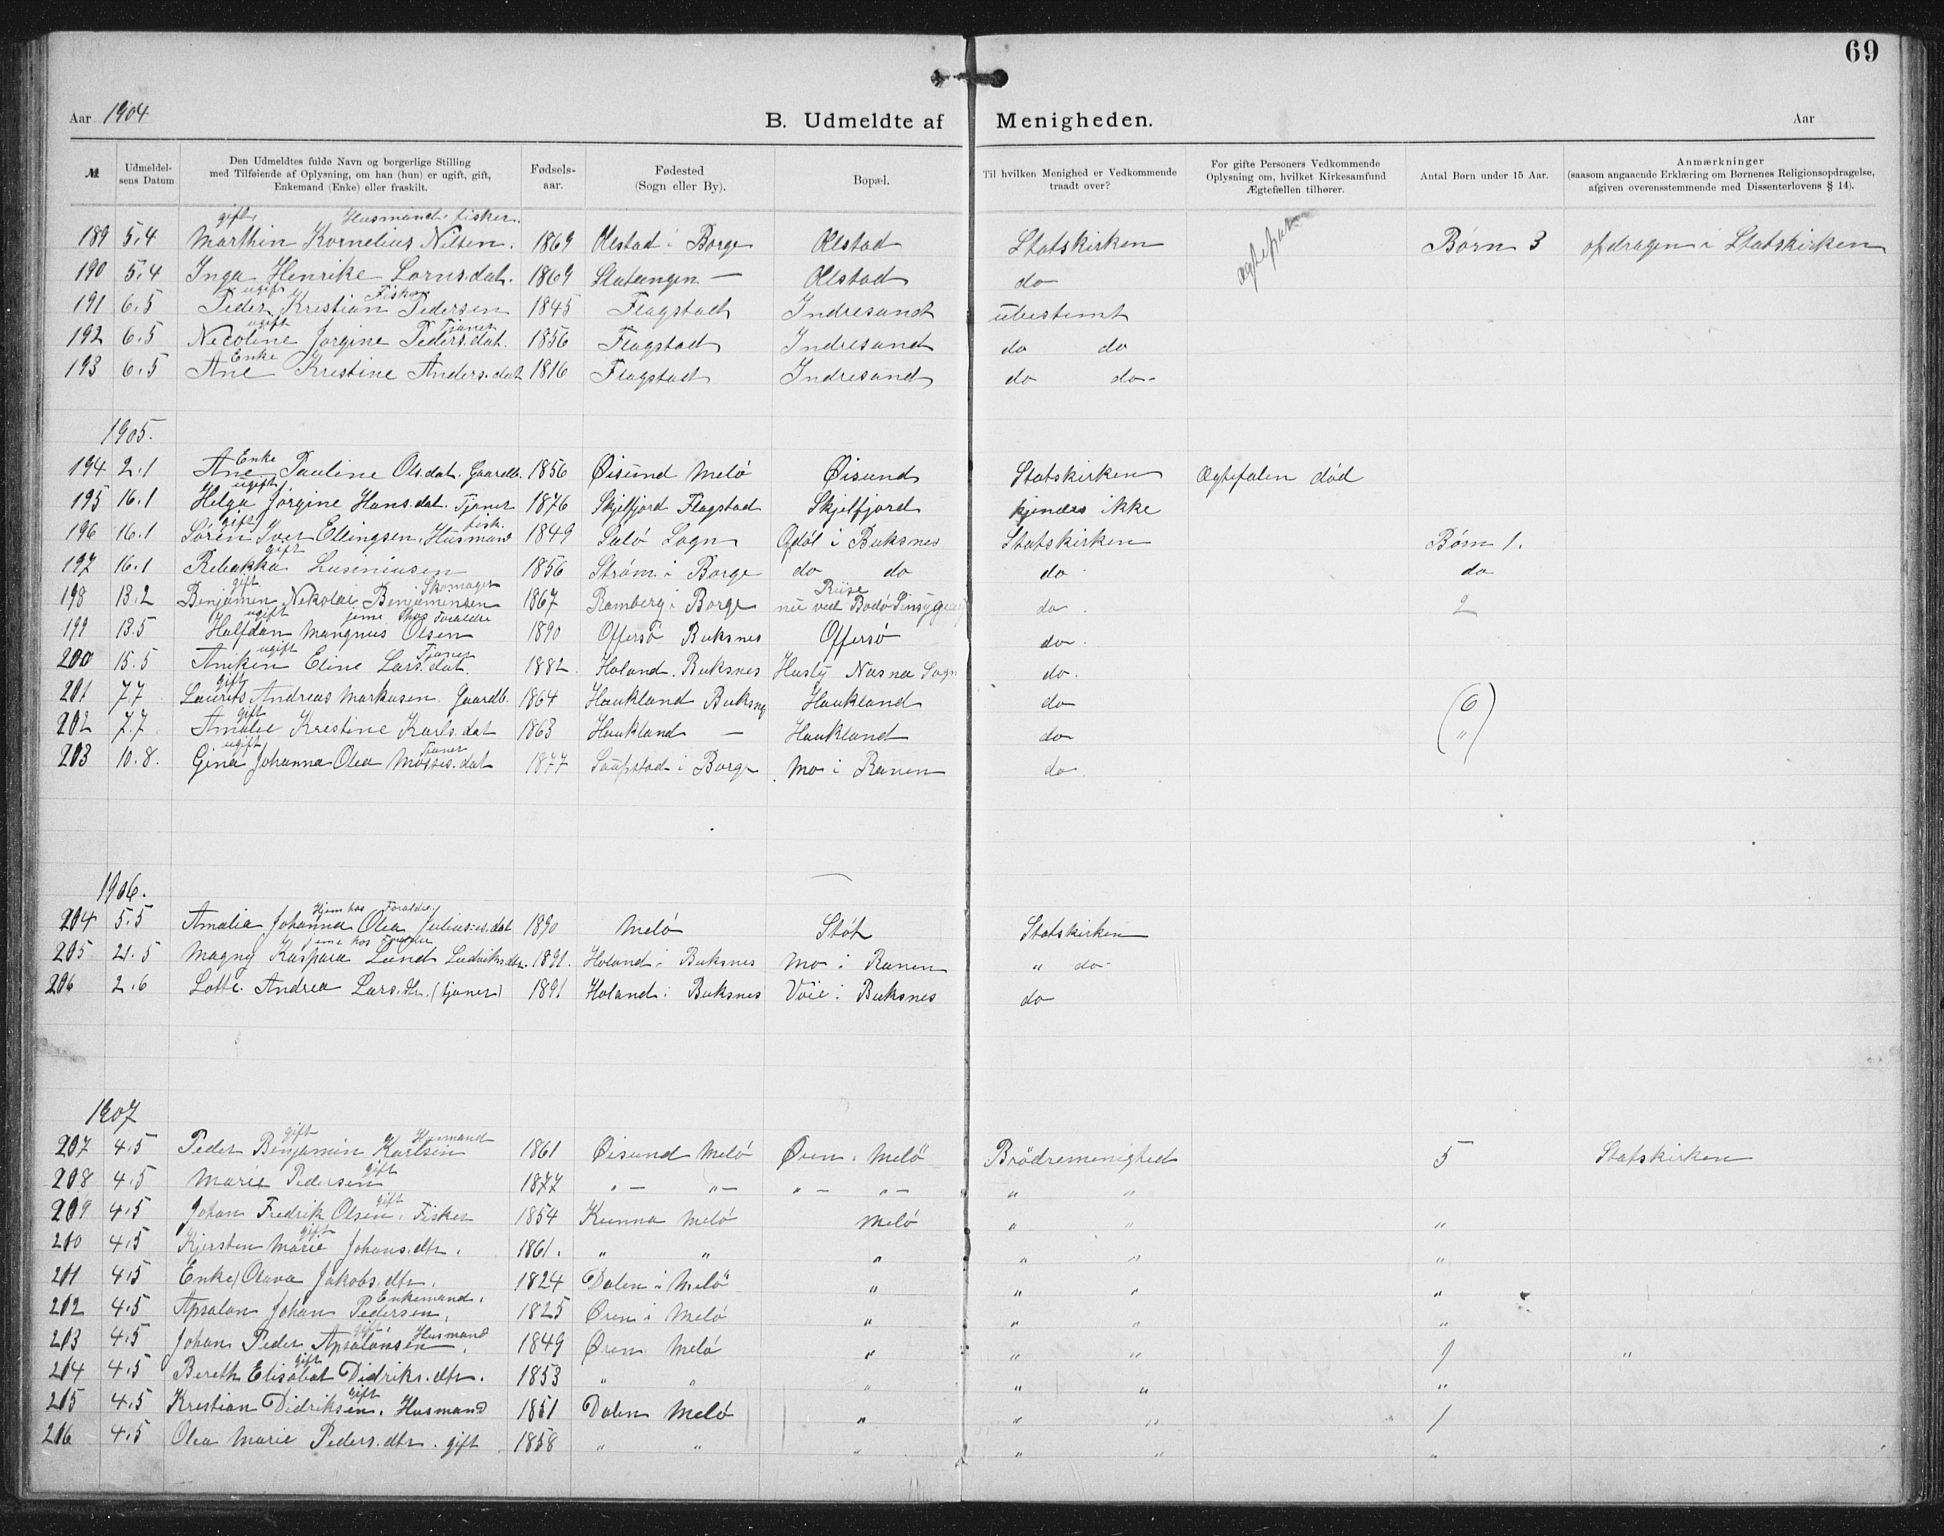 69
Aar 1904 B. Udmeldte af Menigheden. Aar
№ Udmeldelsens Datum. Den Udmeldtes fulde Navn og borgerlige Stilling med Tilføiende af Oplysning, om han (hun) er ugift, gift, Enkemand (Enke) eller fraskilt. Fødselsaar. Fødested (Sogn eller By). Bopæl. Til hvilken Menighed er Vedkommende traadt over? For gifte Personers Vedkommende Oplysning om, hvilket Kirkesamfund Ægtefællen tilhører. Antal Børn under 15 Aar. Anmærkninger (saasom angaaende Erklæring om Børnenes Religionsopdragelse, afgiven overensstemmende med Dissenterlovens § 14).
gift, Husmand. fisker.
189 5.4 Marthin Kornelius Nilsen. 1869 Ølstad i Borge Ølstad Statskirken Børn 3 opdragen i Statskirken
190 5.4 Inga Henrike Lorns.dat. 1869 — Ølstad do
ugift Fisker
191 6.5 Peder Kristian Pedersen 1845 Flagstad Indresand ubestemt
ugift Tjener
192 6.5 Nicoline Jørgine Peders.dat. 1856 Flagstad Indresand do do
Enke
193 6.5 Ane Kristine Anders.dat 1816 Flagstad Indresand do do-
1905.
Enke
194 2.1 Ane Pauline Ols.dat. Gaardb. 1856 Øisund Melö Øisund Statskirken Ægtefalen död
ugift
195 16.1 Helga Jörgine Hans.dat. Tjener 1876 Skjelfjord Flagstad Skjelfjord kjendes ikke
gift fisk.
196 16.1 Sören Iver Ellingsen, Husmand 1849 Sogn i Buksnes Statskirken Børn 1.
gift
197 16.1 Rebakka 1856 Ström i Borge do do do do
gift Skomager Riise
198 13.2 Benjamen Nikolai Benjamensen 1867 Ramberg i Borge nu ved Bodö do. 2
ugift jeme hos Foraldre
199 13.5 Halfdan Mangnus Olsen 1890 Offersö Buksnes Offersö do-
ugift Tjener
200 15.5 Aniken Eline Lars.dat. 1882. Holand. Buksnes Husby Nasna Sogn do.
gift
201 7.7 Laurits Andreas Markusen. Gaardb. 1864 Haukland Buksnes Haukland do (6)
gift
202 7.7 Amalie Kristine Karls.dat 1863 Haukland — Haukland do "
ugift Tjener
203 10.8. Gina Johanna Olea Moses.dat 1877 Saupstad i Borge Mo i Ranen do
1906.
Hjem hos Foraldre
204 5.5 Amalia Johanna Olea Julius.dat 1890 Melö Stöt Statskirken
jeme hos Foraldre
205 21.5 Magny Kaspara Lund Ludviks.dtr. 1891. Holand i Buksnes Mo i Ranen " do-
206 2.6 Lotte Andrea Lars.dtr. (tjener) 1891 Holand i Buksnes Voie i Buksnes do
1907
gift Husmand
207 4.5 Peder Benjamin Karlsen 1861 Øisund Melö Ören i Melö Brödremenighed 5 Statskirken
gift
208 4.5 Marie Pedersen 1877 "- "- "- "- " "
gift
209 4.5 Johan Fredrik Olsen. Fisker 1854 Kunna Melö Melö " " "
gift
210 4.5 Kjersten Marie Johans.dtr. 1861. " " " " " "
201 4.5 Enke Olava Jakobs.dtr. 1824 Dalen i Melö " " " "
Enkemand.
202 4.5 Apsalon Johan Pedersen. 1825 Ören i Melö " " "
gift Husmand
203 4.5 Johan Peder Apsalonsen. 1849 Ören Melö " " " 1 "
gift
204 4.5 Bereth Elisabet Didriks.dtr. 1853 " " " " " "
gift
205 4.5 Krestian Didriksen. Husmand 1851 Dalen Melö " " " 1
206 4.5 Olea Marie Peders.dtr. gift 1858 " " " " " "